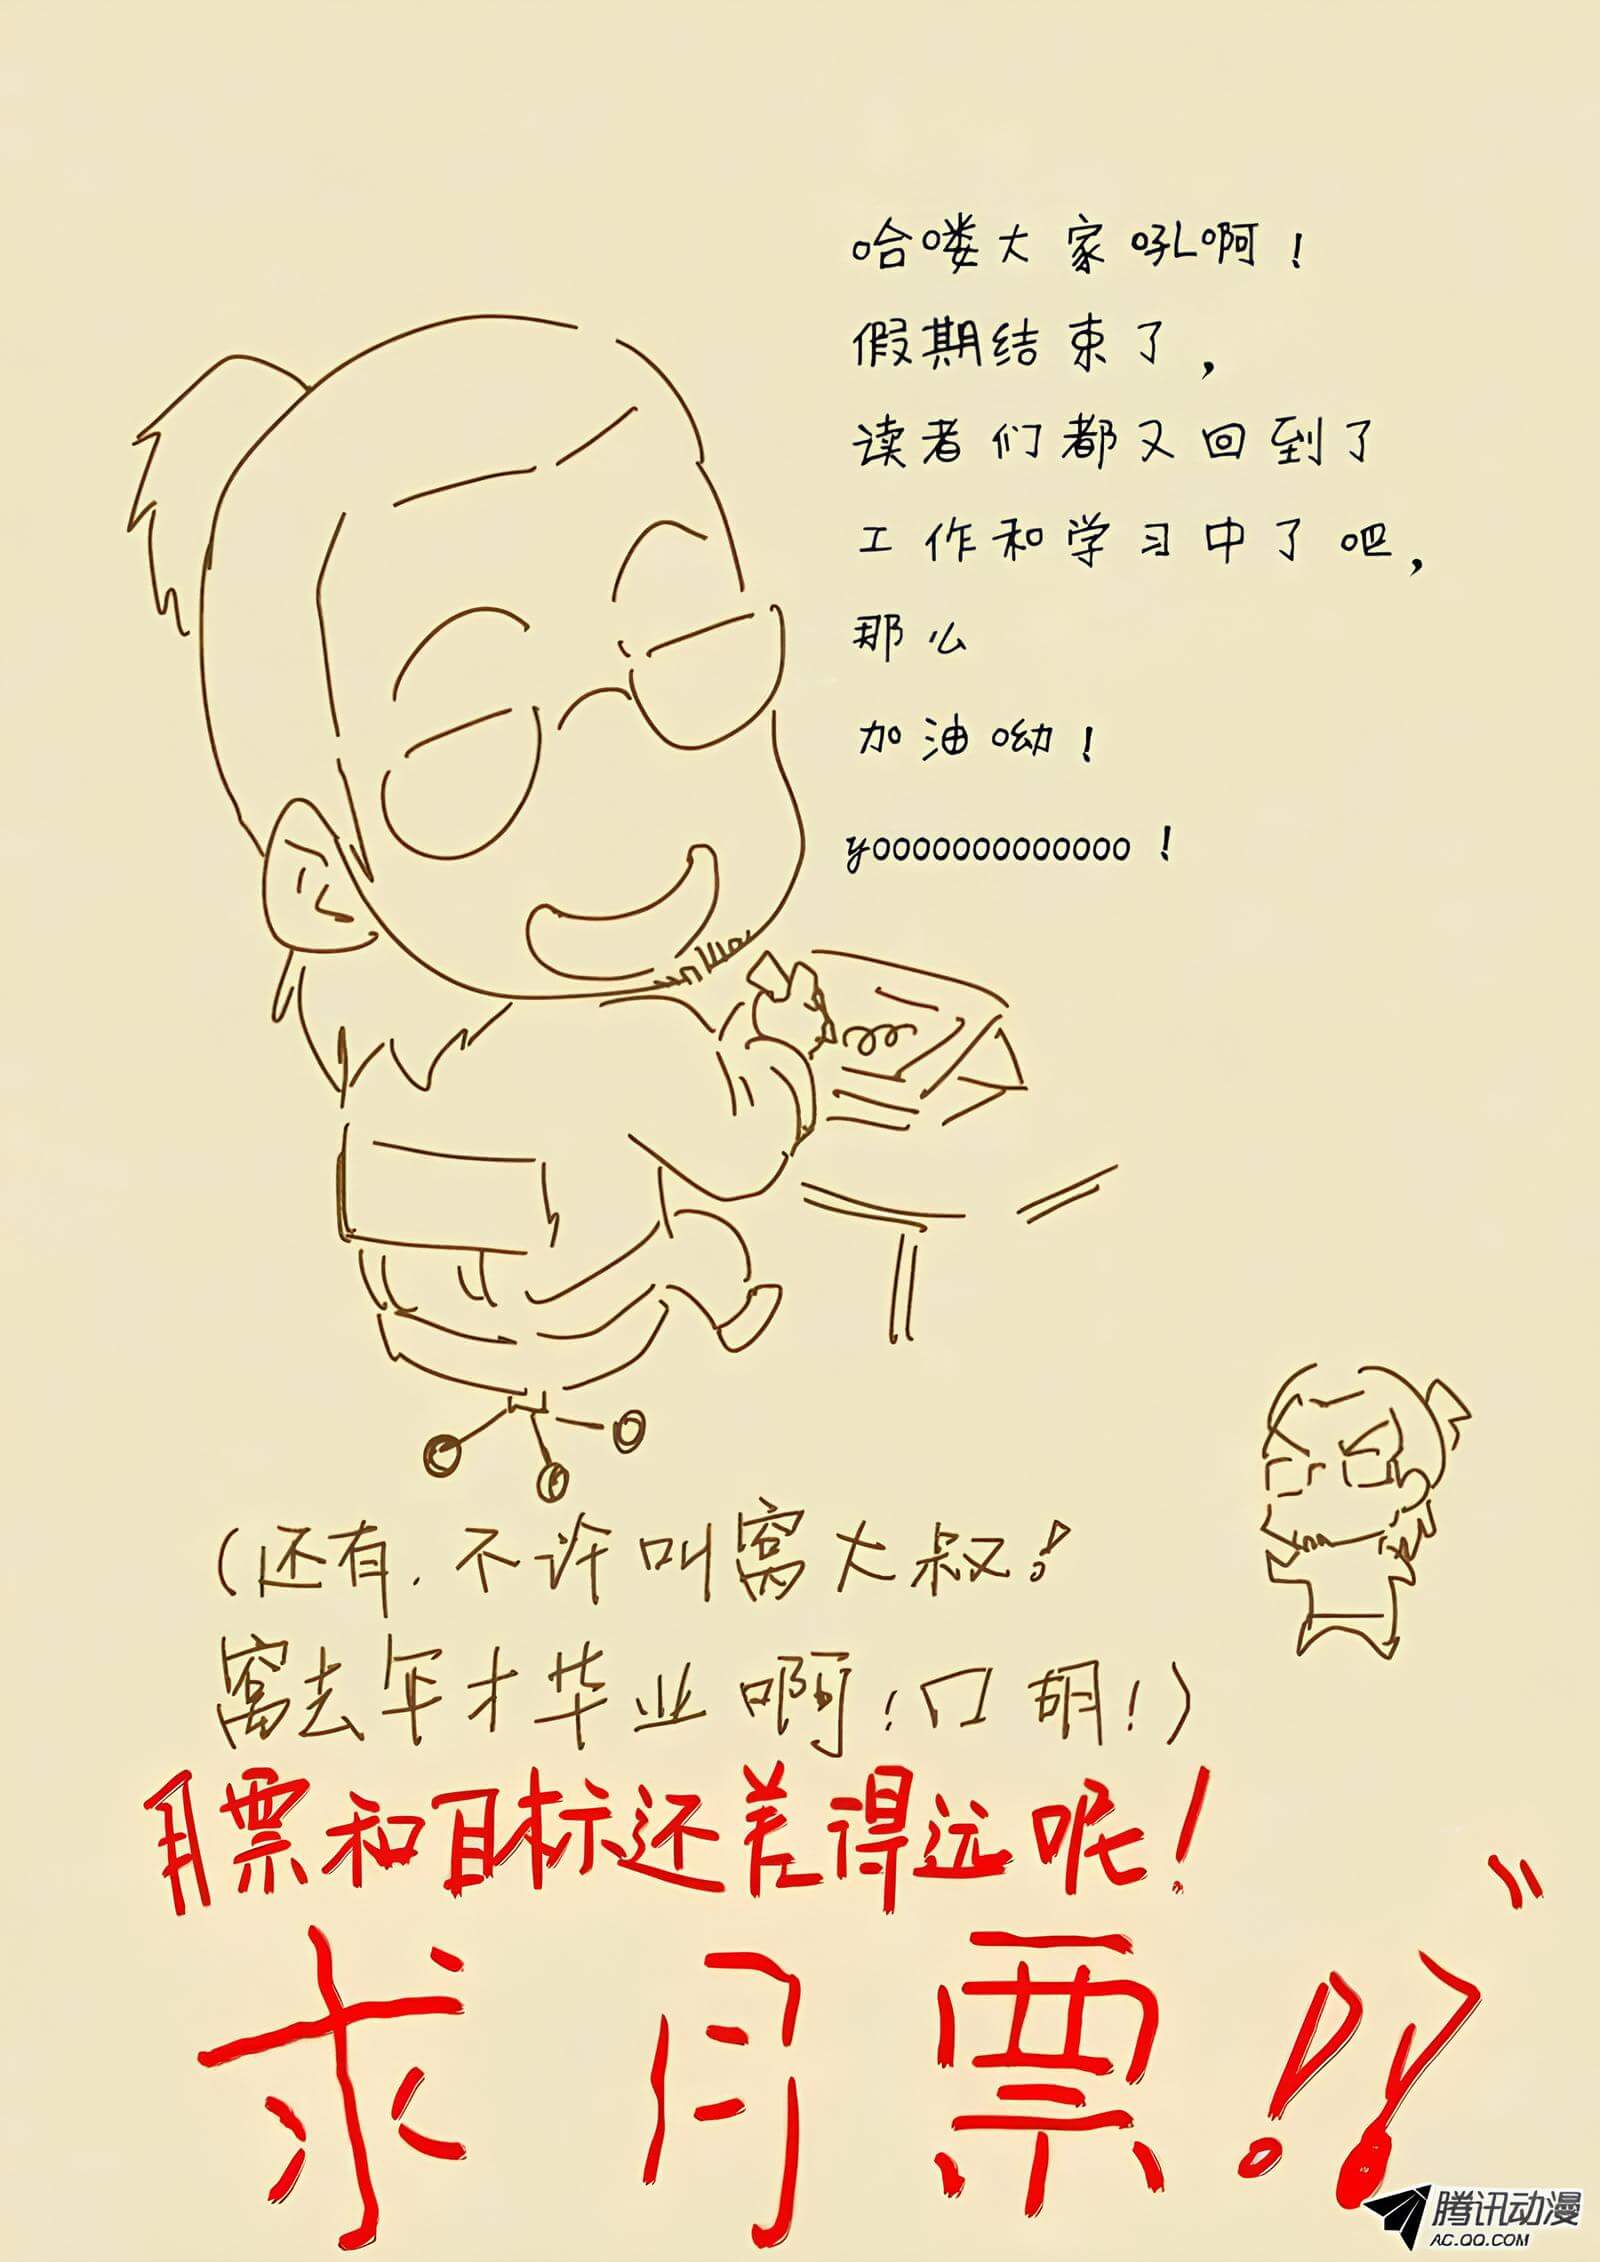 哈喽大家吼啊！
假期结束了，
读者们都又回到了
工作和学习中了吧，
那么
加油呦！
yooooooooooooo！
（还有，不许叫窝大叔！
窝去年才毕业啊！口胡！）
月票和目标还差得远呢！
求月票！！
腾讯动漫
AC.QQ.COM